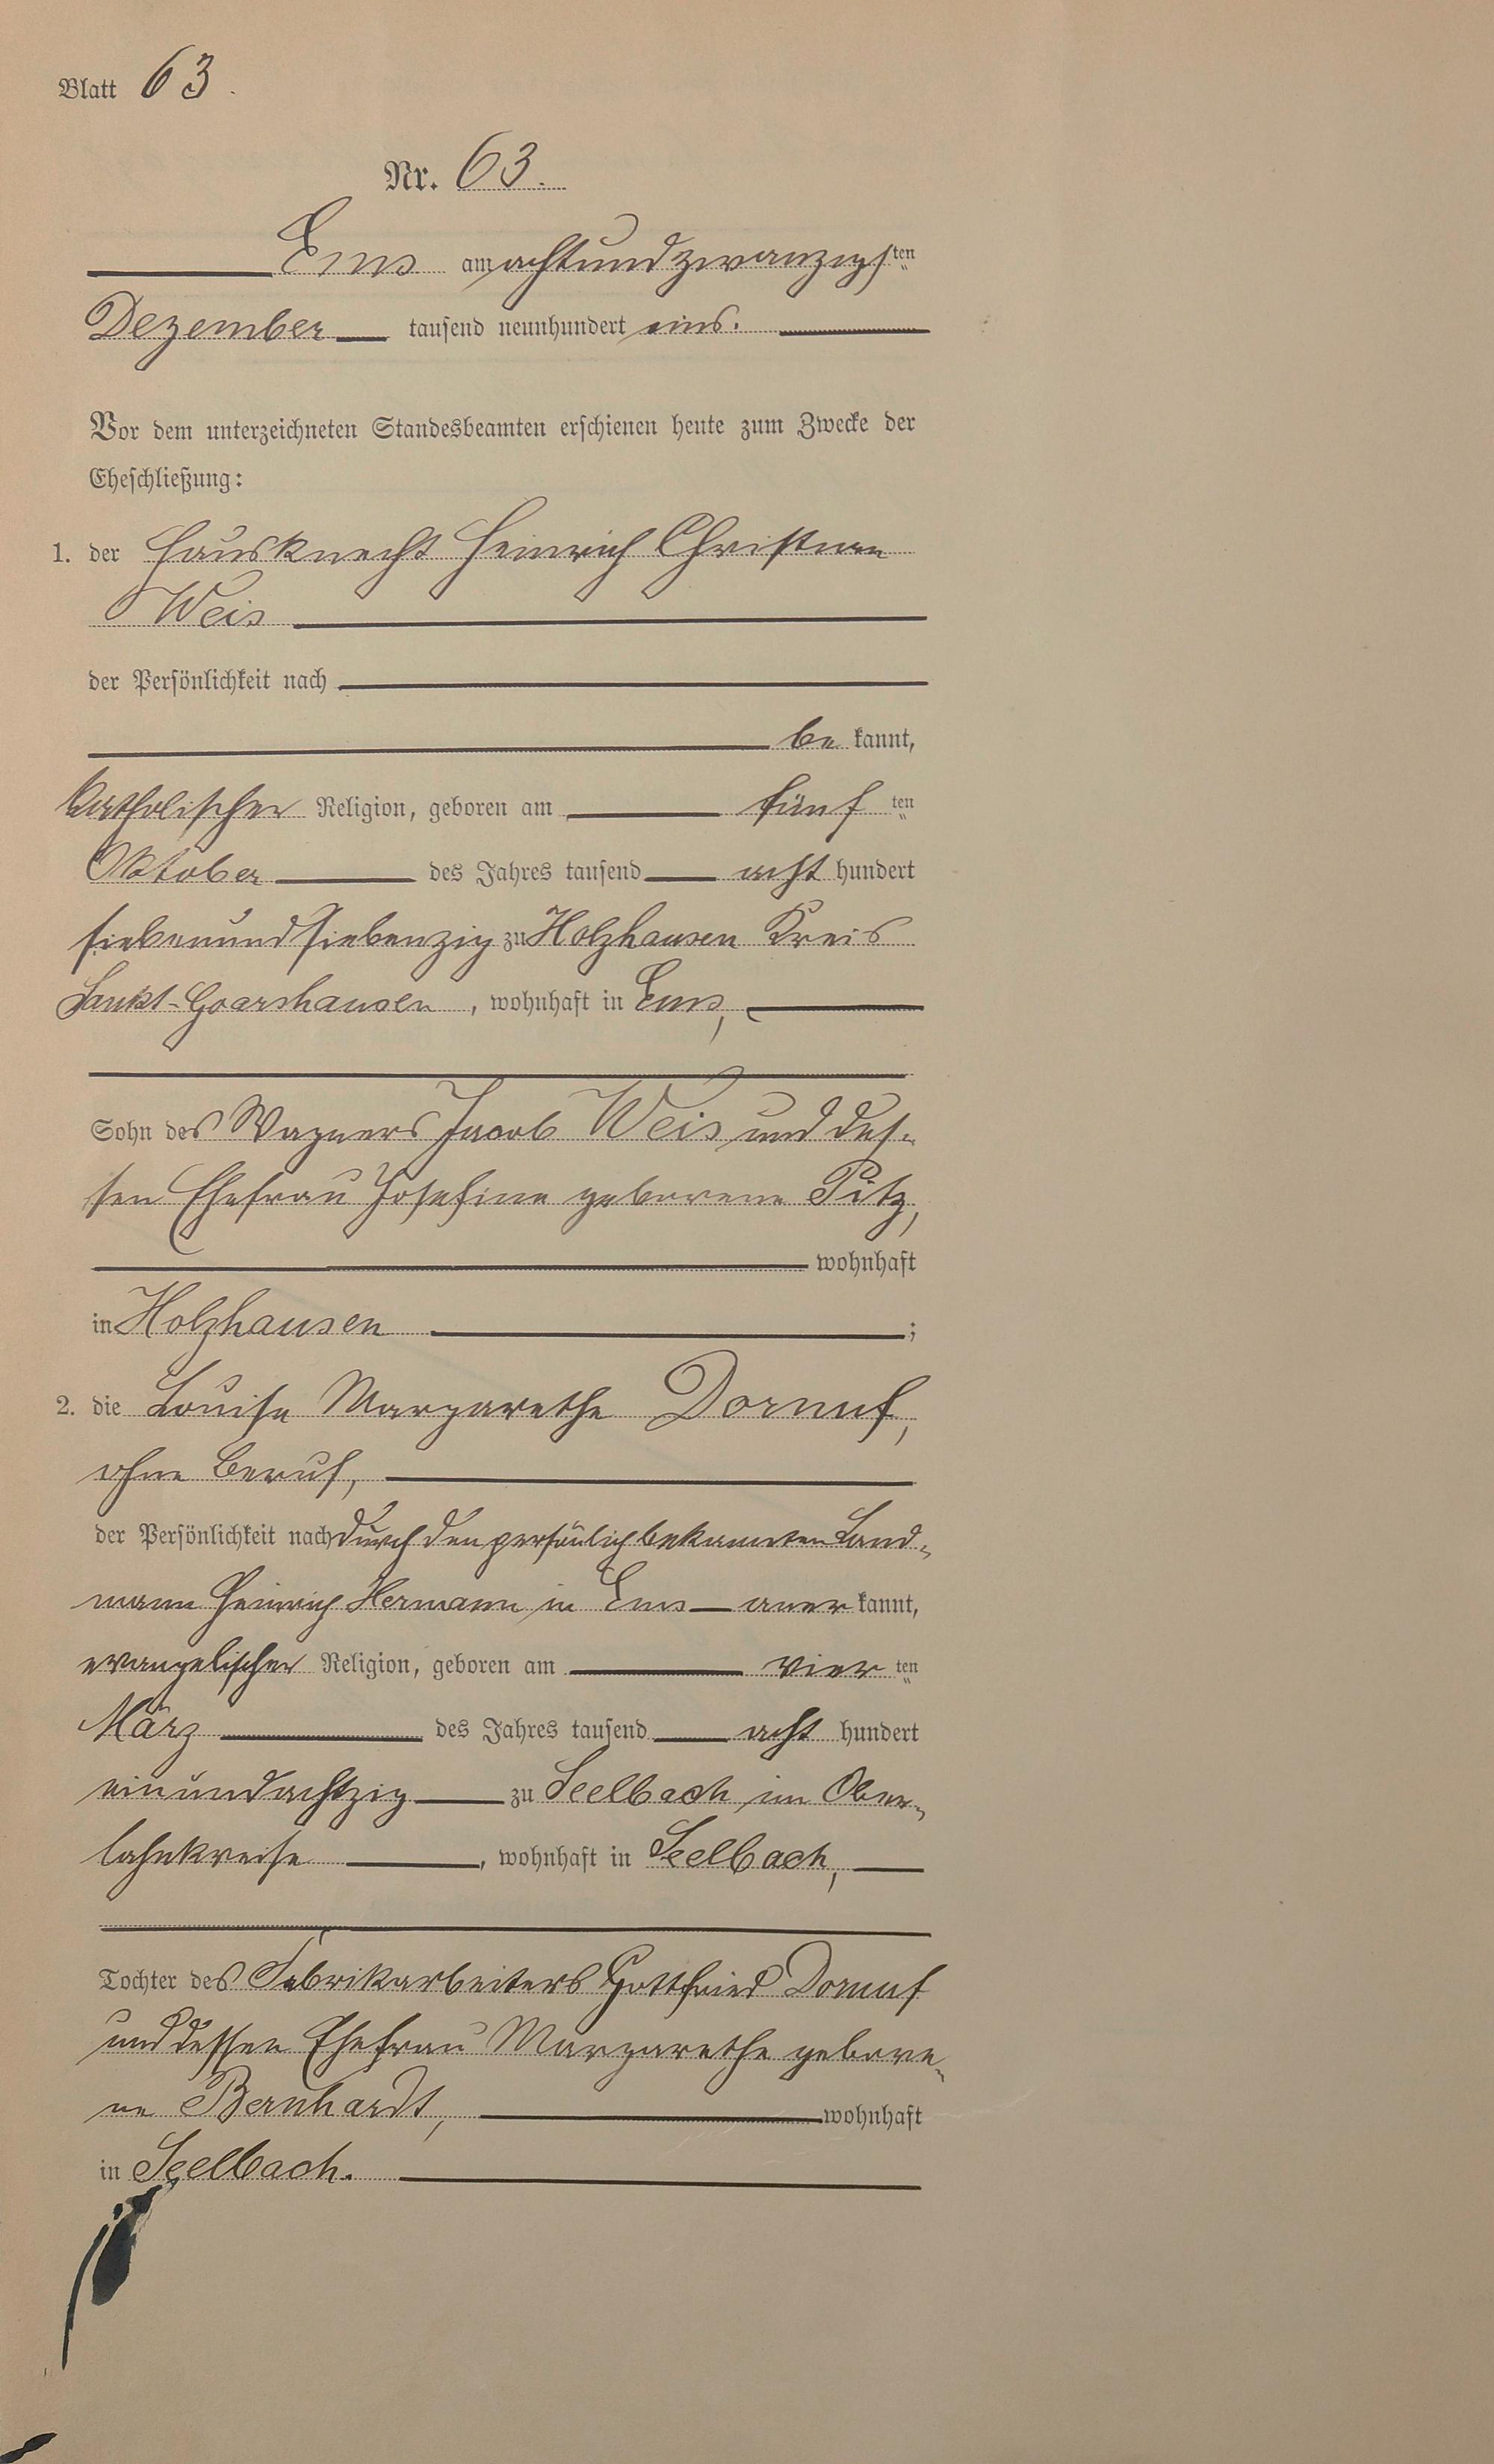 Blatt 63.
Nr. 63.
Ems am achtundzwanzigsten
Dezember tausend neunhundert eins.
Vor dem unterzeichneten Standesbeamten erschienen heute zum Zwecke der
Eheschließung:
1. der Hausknecht Heinrich Christian
Weis
der Persönlichkeit nach
be kannt,
katholischer Religion, geboren am fünf ten
Oktober des Jahres tausend acht hundert
siebenundsiebenzig zu Holzhausen Kreis
Sankt-Goarshausen, wohnhaft in Ems,
Sohn des Wagners Jacob Weis und des-
sen Ehefrau Josefine geborene Pitz,
wohnhaft
in Holzhausen ;
2. die Louise Margarethe Dornuf,
ohne Beruf,
der Persönlichkeit nach durch den persönlich bekannten Land-
mann Heinrich Hermann in Ems aner kannt,
evangelischer Religion, geboren am vier ten
März des Jahres tausend acht hundert
einundachtzig zu Seelbach im Ober-
lahnkreise, wohnhaft in Seelbach,
Tochter des Fabrikarbeiters Gottfried Dornuf
und dessen Ehefrau Margarethe gebore-
ne Bernhardt, wohnhaft
in Seelbach.